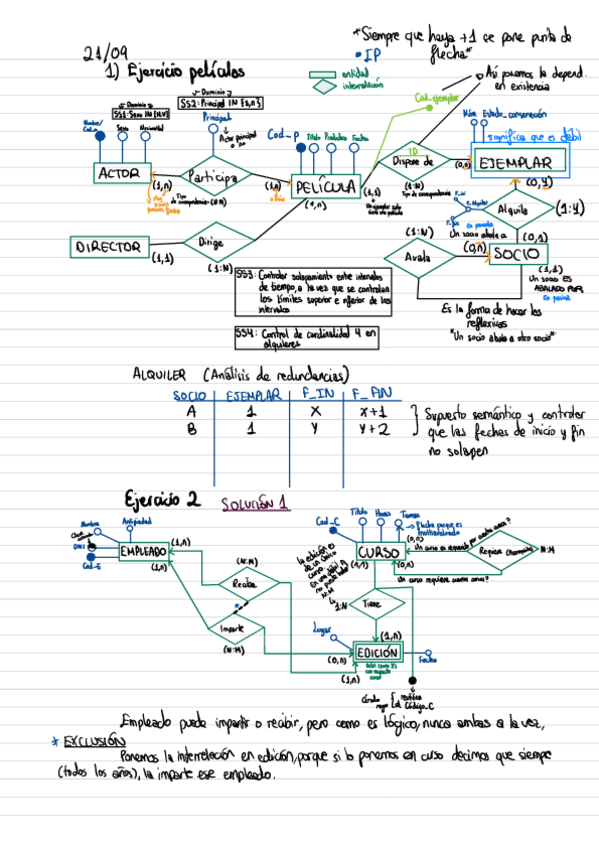 *Siempre que haya +1 se pone punta de flecha*
21/09
• IP
1) Ejercicio películas
entidad
interrelación
Así ponemos la depend. en existencia
Cod_ejemplar
Dominio
SS1: Sexo IN {H,V}
Dominio
SS2: Principal IN {s,n}
Principal
Actor principal o no
Nombre/
Sexo
Nacionalidad
Cod_P
Título
Productora
Fecha
Núm
Estado_conservación
significa que es débil
ACTOR
(1,n)
Participa
(1,n)
PELÍCULA
(1,1)
(1,n)
ID
Dispone de
(1:N)
Tipo de correspondencia
(0,n)
EJEMPLAR
Tipo de correspondencia (N:M)
Un ejemplar solo
(0,4)
F_ini
F_Alquiler
F_fin
Alquila
(1:4)
Un socio abala a
(0,1)
(1:N)
(0,n)
Avala
SOCIO
(1,1)
Un socio ES ABALADO POR
DIRECTOR
(1,1)
Dirige
(1:N)
SS3: Controlar solapamiento entre intervalos de tiempo, a la vez que se controlan los límites superior e inferior de los intervalos
SS4: Control de cardinalidad 4 en alquileres
Es la forma de hacer las reflexivas
"Un socio abala a otro socio"
ALQUILER (Análisis de redundancias)
SOCIO EJEMPLAR F_IN F_FIN
A 1 X X+1
B 1 Y Y+2
Supuesto semántico y controlar que las fechas de inicio y fin no solapen
Ejercicio 2 SOLUCIÓN 1
Nombre
Antigüedad
DNI
Cod_E
EMPLEADO
(1,n)
(1,n)
(N:M)
Recibe
*
Imparte
(N:M)
la edición es de un único curso
1:N
Cod_C
Título
Horas
Temas
Flecha porque es multivalorado
CURSO
(0,n)
(0,n)
Un curso es requerido por cuantos cursos?
Requiere
N:M
Un curso requiere cuantos cursos?
Tiene
(1,n)
Lugar
(0,n)
EDICIÓN
Fecha
(1,n)
Código_C
Empleado puede impartir o recibir, pero como es lógico, nunca ambas a la vez,
* EXCLUSIÓN
Ponemos la interrelación en edición, porque si lo ponemos en curso decimos que siempre
(todos los años), la imparte ese empleado.